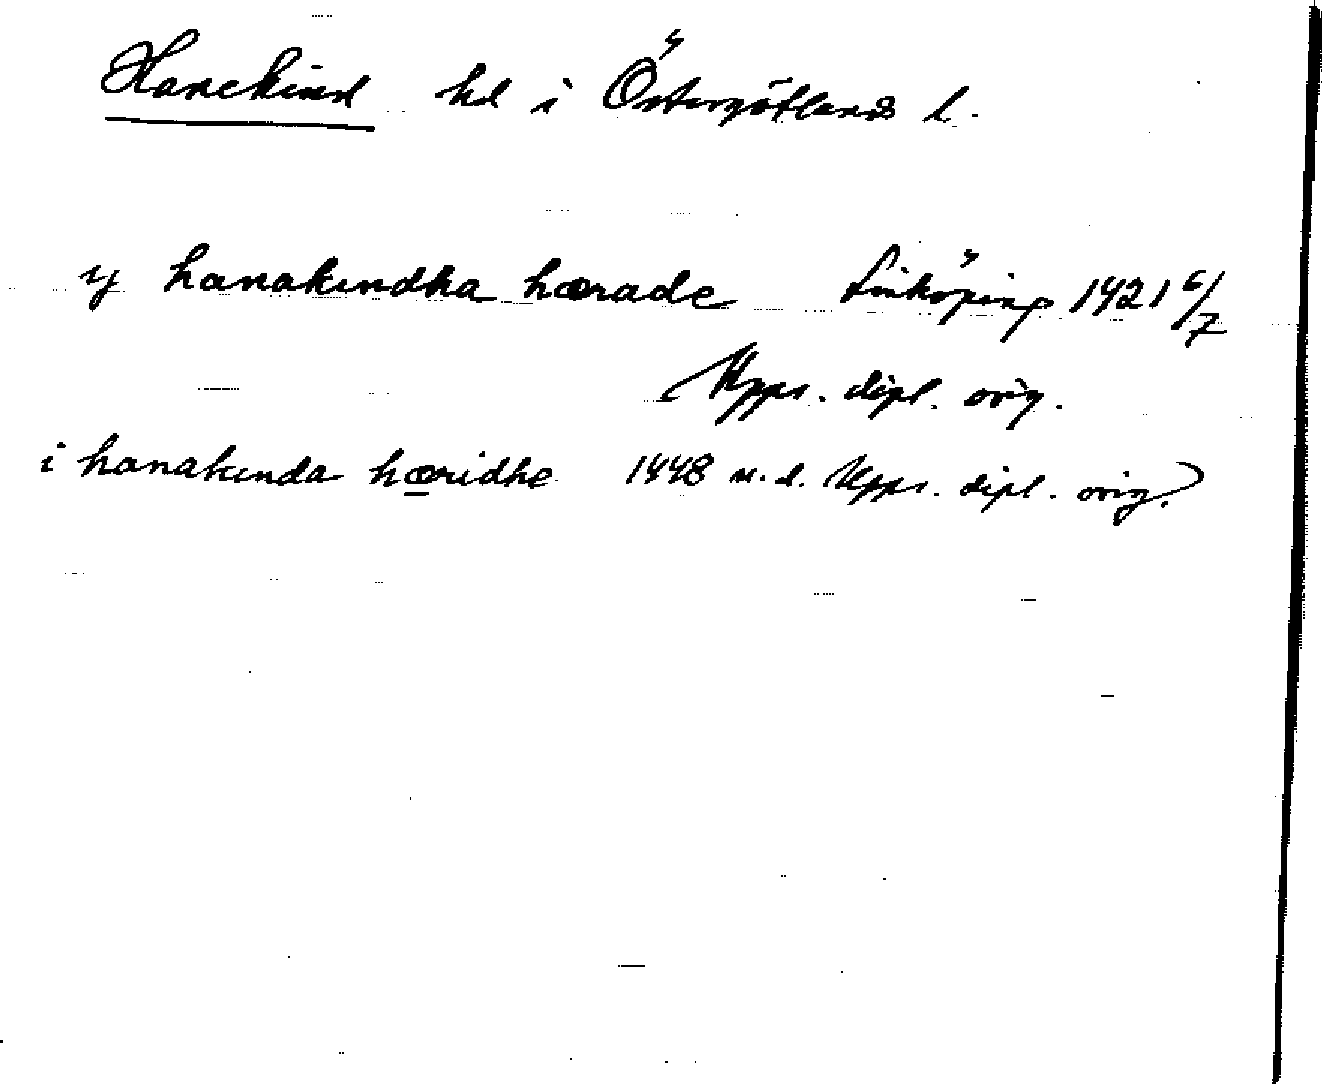 Hanekind hd i Östergötlands l.
y hanakindha hærade Linköping 1421 6/7
Upps. dipl. orig.
i hanakinda hæridhe 1448 u.d. Upps. dipl. orig.